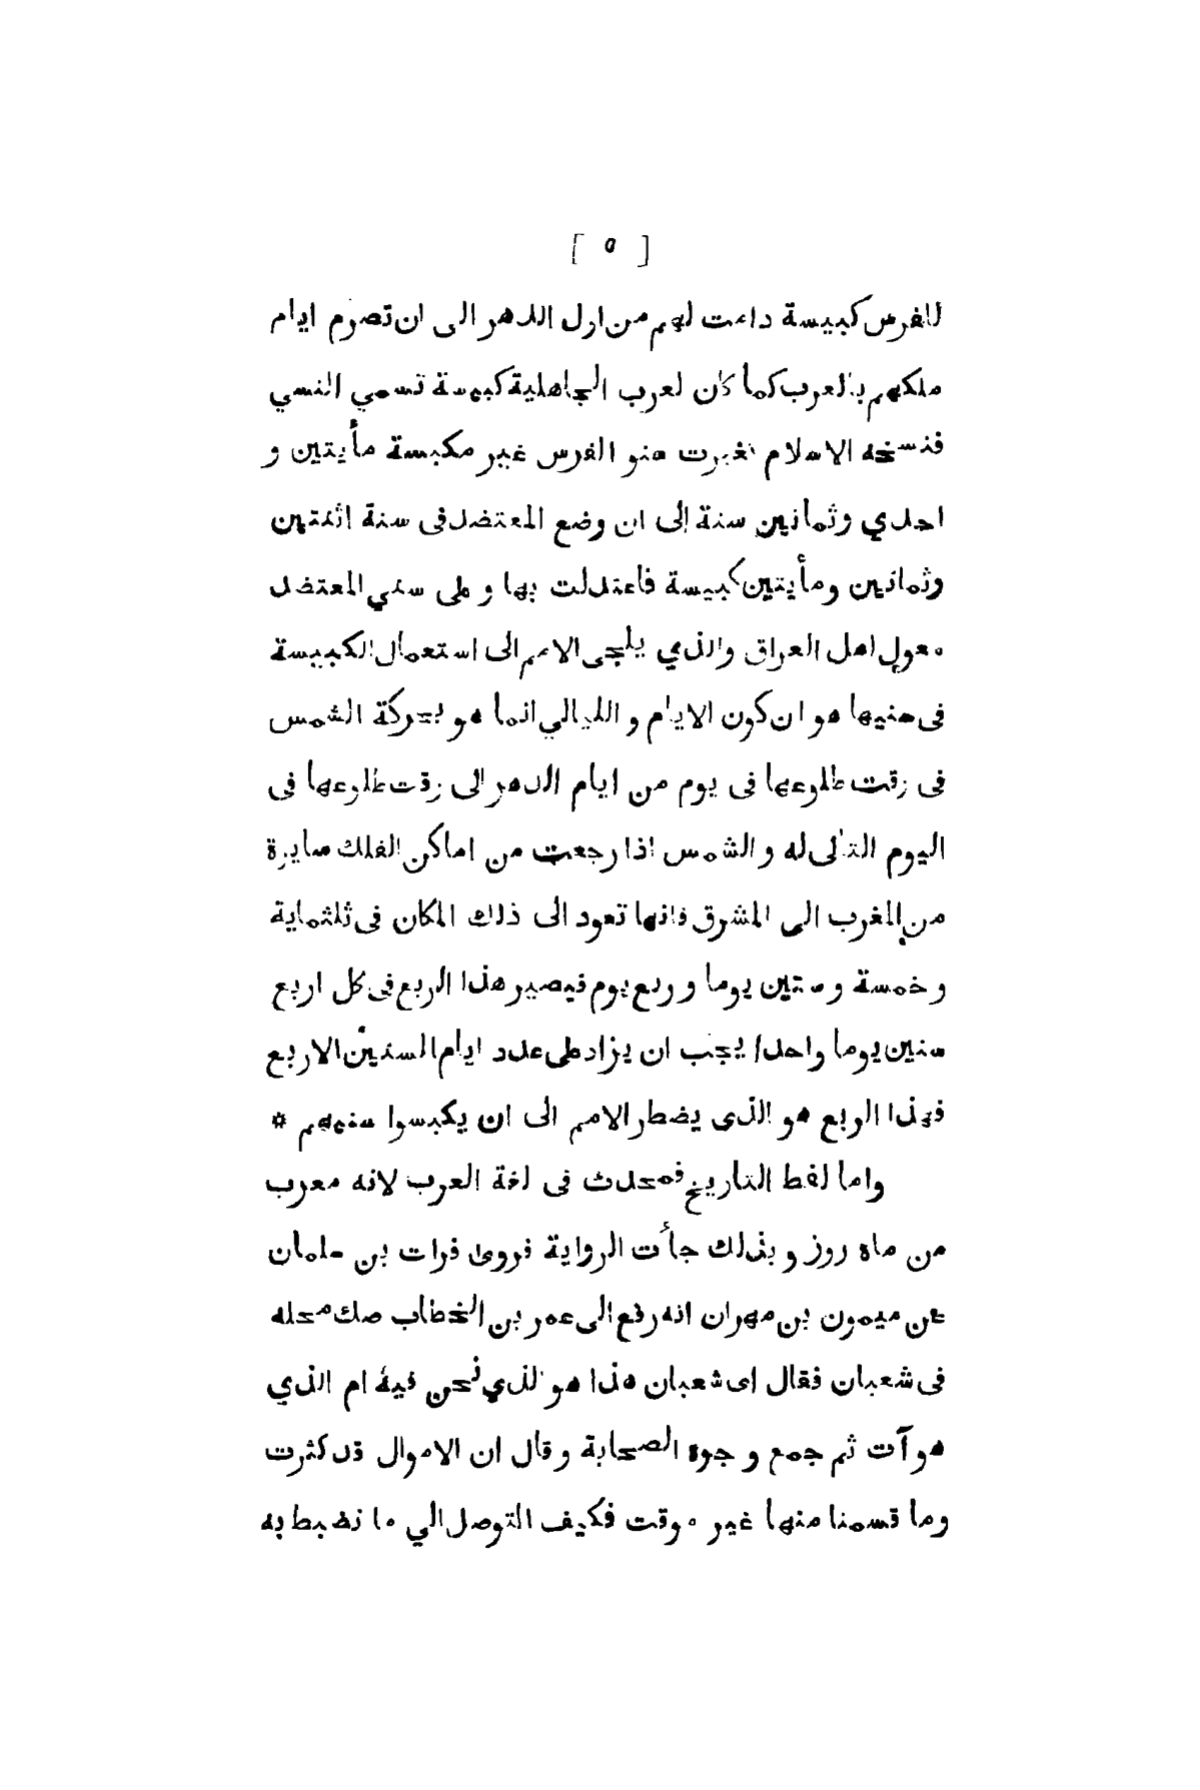 [ ٥ ]
للفرس كبيسة دامت لهم من اول الدهر الى ان تصرم ايام
ملكهم بالعرب كما كان لعرب الجاهلية كبيسة تسمي النسي
فنسخه الاسلام فغبرت سنو الفرس غير مكبسة مأيتين و
احدي وثمانين سنة الى ان وضع المعتضد فى سنة اثنتين
وثمانين ومأيتين كبيسة فاعتدلت بها و على سني المعتضد
معول اهل العراق والذي يلجى الامم الى استعمال الكبيسة
فى سنيها هو ان كون الايام و الليالي انما هو بحركة الشمس
فى وقت طلوعها فى يوم من ايام الدهر الى وقت طلوعها فى
اليوم التالى له والشمس اذا رجعت من اماكن الفلك سايرة
من المغرب الى المشرق فانها تعود الى ذلك المكان فى ثلثماية
و خمسة و ستين يوما و ربع يوم فيصير هذا الربع فى كل اربع
سنين يوما واحدا يجب ان يزاد على عدد ايام السنين الاربع
فهذا الربع هو الذى يضطر الامم الى ان يكبسوا سنيهم *
واما لفظ التاريخ فمحدث فى لغة العرب لانه معرب
من ماه روز و بذلك جأت الرواية فروى فرات بن سلمان
عن ميمون بن مهران انه رفع الى عمر بن الخطاب صك محله
فى شعبان فقال اى شعبان هذا هو الذي نحن فيه ام الذي
هو آت ثم جمع و جوه الصحابة و قال ان الاموال قد كثرت
وما قسمنا منها غير موقت فكيف التوصل الي ما نضبط به